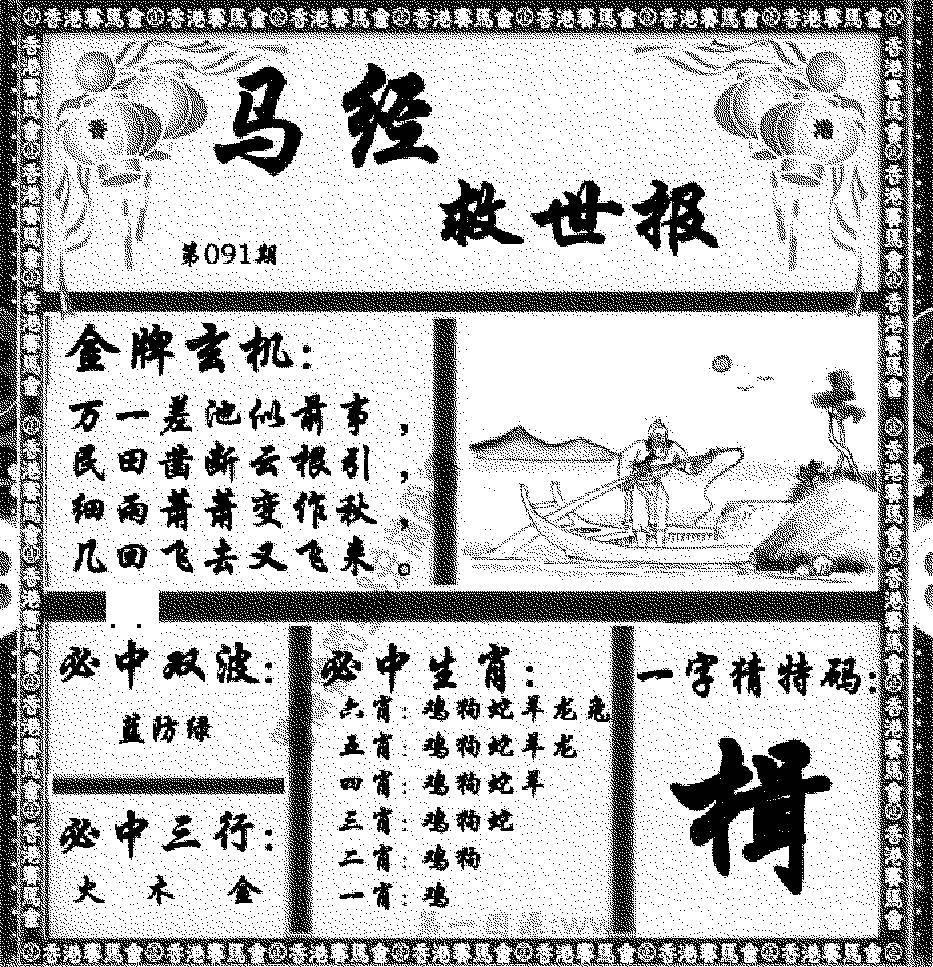 香港賽馬會香港賽馬會香港賽馬會香港賽馬會香港賽馬會香港賽馬會香港賽馬會
香
港
马经
救世报
第091期
金牌玄机:
万一差池似前事,
民田凿断云根引,
细雨萧萧变作秋,
几回飞去又飞来。
必中双波:
蓝防绿
必中三行:
火 木 金
必中生肖:
六肖:鸡狗蛇羊龙兔
五肖:鸡狗蛇羊龙
四肖:鸡狗蛇羊
三肖:鸡狗蛇
二肖:鸡狗
一肖:鸡
一字猜特码:
揖
香港賽馬會香港賽馬會香港賽馬會香港賽馬會香港賽馬會香港賽馬會香港賽馬會